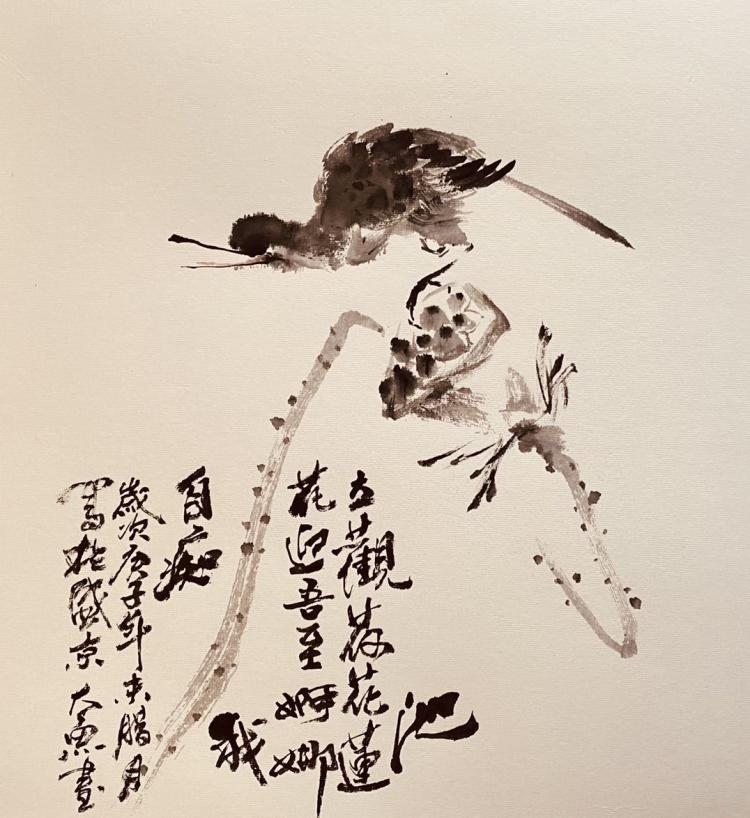 立觀荷花蓮
池
花迎吾至婀娜
我
自痴
歲次庚子年末臘月
寫於盛京大魚畫